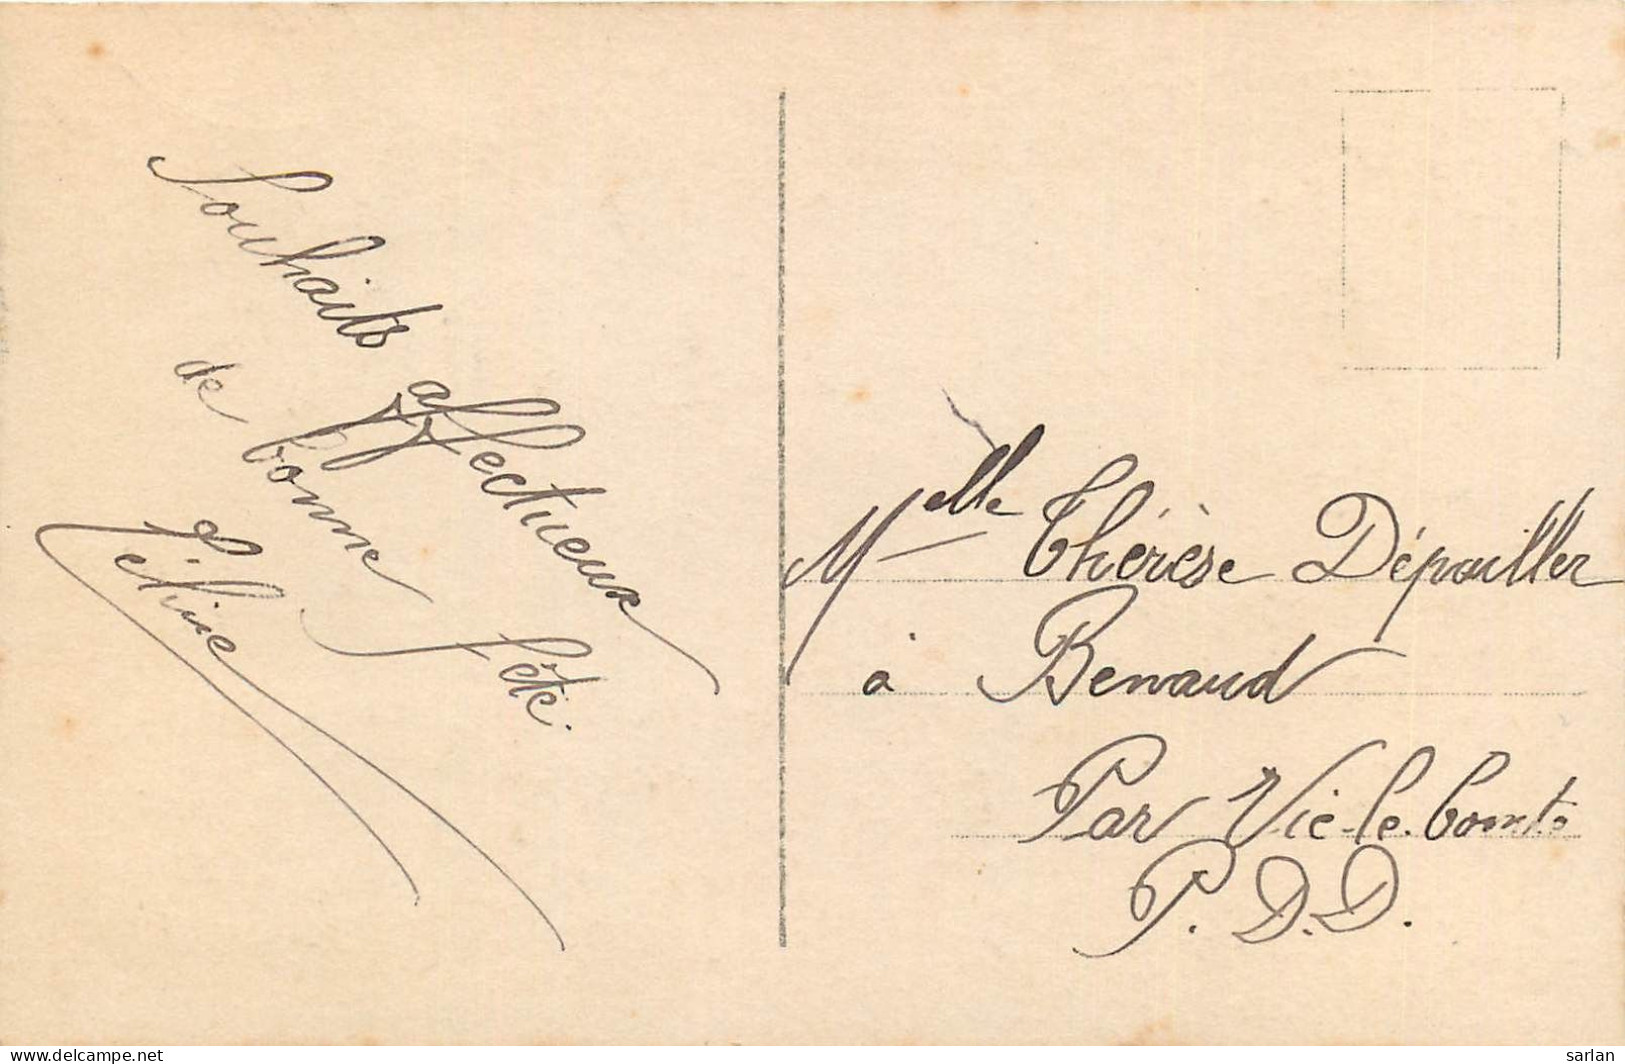 Souhaits affectueux
de bonne fête.
Melle Thérèse Dépailler
à Benaud
Par Vic-le-Comte
P.D.D.
www.delcampe.net
sarlan